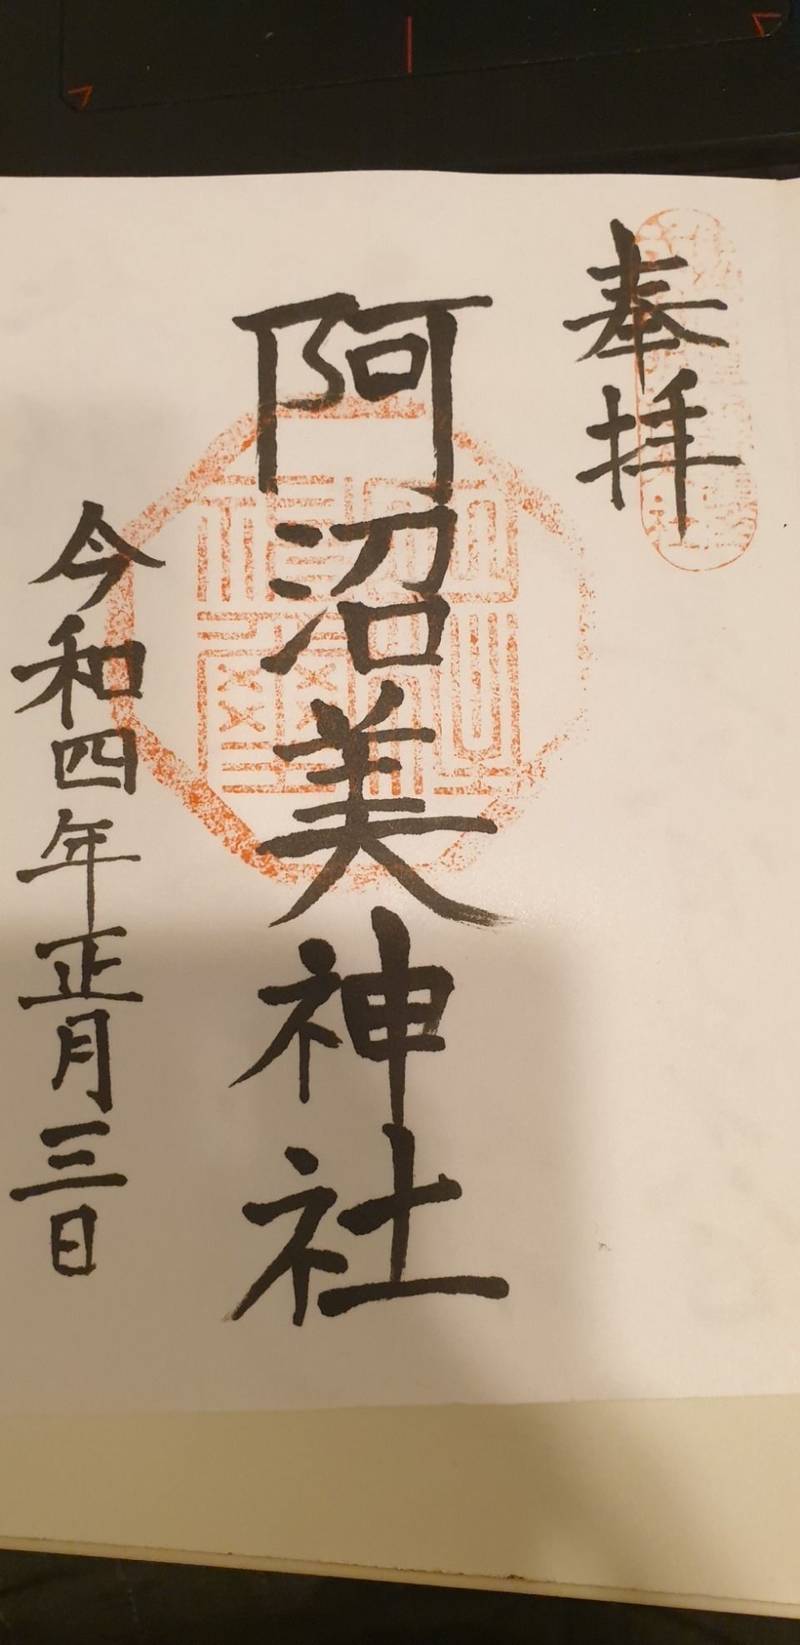 奉拝
阿沼美神社
令和四年正月三日